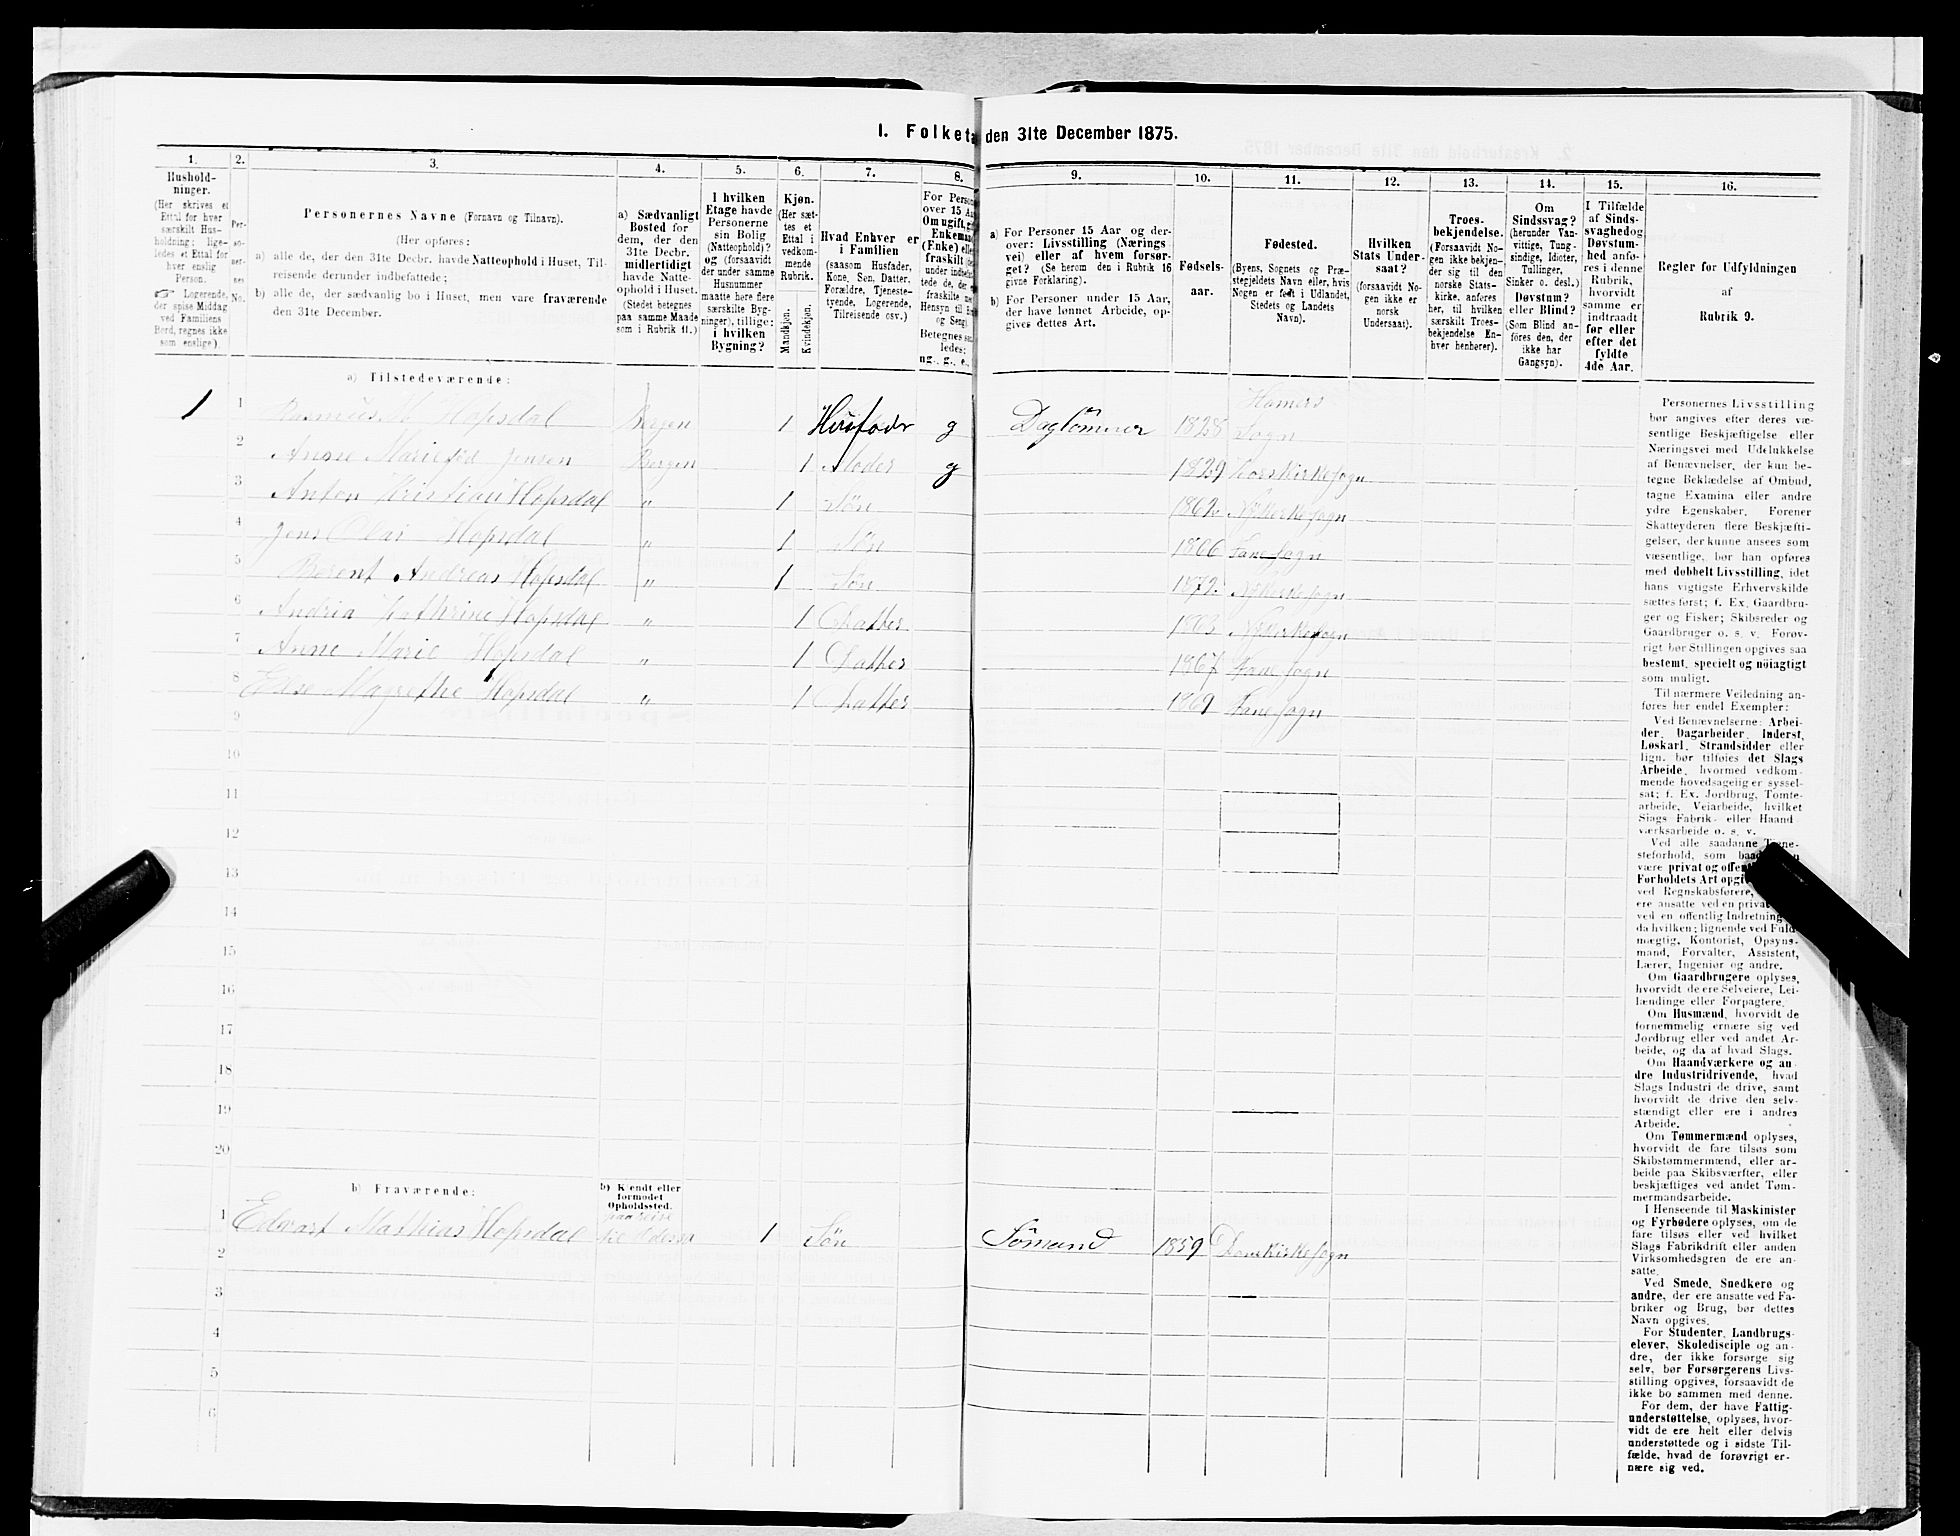 1. Folketæ den 31te December 1875.
1. 2. 3. 4. 5. 6. 7. 8. 9. 10. 11. 12. 13. 14. 15. 16.
Hushold-
ninger.
(Her skrives et
Ettal for hver
særskilt Hus-
holdning; lige-
ledes et Ettal for
hver enslig
Person.
Logerende,
der spise Middag
ved Familiens
Bord, regnes ikke
som enslige).
Per-
so-
ner-
nes
No.
Personernes Navne (Fornavn og Tilnavn).
(Her opføres:
a) alle de, der den 31te Decbr. havde Natteophold i Huset, Til-
reisende derunder indbefattede;
b) alle de, der sædvanlig bo i Huset, men vare fraværende
den 31te December.
a) Sædvanligt
Bosted for
dem, der den
31te Decbr.
midlertidigt
havde Natte-
ophold i Huset.
(Stedet betegnes
paa samme Maade
som i Rubrik 11.)
I hvilken
Etage havde
Personerne
sin Bolig
(Natteophold)?
og (forsaavidt
der under samme
Husnummer
maatte høre flere
særskilte Byg-
ninger), tillige:
i hvilken
Bygning?
Kjøn.
(Her sæt-
tes et
Ettal i
vedkom-
mende
Rubrik.
Mandkjøn.
Kvindekjøn.
Hvad Enhver er
i Familien
(saasom Husfader,
Kone, Søn, Datter,
Forældre, Tjeneste-
tyende, Logerende,
Tilreisende osv.)
For Person
over 15 Aa
Om ugift, g
Enkeman
(Enke) elle
fraskilt (de
under indbe
tede de, der
fraskilte me
Hensyn til B
og Seng).
Betegnes saa
ledes:
ug., g., e.,
a) For Personer 15 Aar og der-
over: Livsstilling (Nærings
vei) eller af hvem forsør-
get? (Se herom den i Rubrik 16
givne Forklaring).
b) For Personer under 15 Aar,
der have lønnet Arbeide, op-
gives dettes Art.
Fødsels-
aar.
Fødested.
(Byens, Sognets og Præ-
stegjeldets Navn eller, hvis
Nogen er født i Udlandet,
Stedets og Landets
Navn).
Hvilken
Stats Under-
saat?
(forsaavidt No-
gen ikke er
norsk
Undersaat).
Troes-
bekjendelse.
(Forsaavidt No-
gen ikke bekjen-
der sig til den
norske Stats-
kirke, anføres
her, til hvilken
særskilt Troes-
bekjendelse En-
hver henhører).
Om
Sindssvag?
(herunder Van-
vittige, Tung-
sindige, Idioter,
Tullinger,
Sinker o. desl.)
Døvstum?
eller Blind?
(Som Blind an-
føres den, der
ikke har
Gangsyn).
I Tilfælde
af Sinds-
svaghedog
Døvstum-
hed anfø-
res i denne
Rubrik,
hvorvidt
samme er
indtraadt
før eller
efter det
fyldte
4de Aar.
Regler for Udfyldningen
af
Rubrik 9.
a) Tilstedeværende:
1 1 Rasmus M Hopsdal Bergen 1 Husfadr g Daglönner 1828 Hamers Sogn
2 Anne Marie fød Jensen Bergen 1 Moder g 1829 Korskirkesogn
3 Anton Kristian Hopsdal " 1 Søn 1862 Nykirkesogn
4 Jens Olai Hopsdal " 1 Søn 1866 Fane sogn
5 Berent Andreas Hopsdal " 1 Søn 1872 Nykirkesogn
6 Andria Kathrine Hopsdal " 1 Datter 1863 Nykirkesogn
7 Anne Marie Hopsdal " 1 Datter 1867 Fane sogn
8 Else Magrethe Hopsdal " 1 Datter 1869 Fane sogn
9
10
11
12
13
14
15
16
17
18
19
20
b) Fraværende:
b) Kjendt eller
formodet
Opholdssted.
1 Edvart Mathias Hopsdal paa reise til Odessa 1 Søn Sömand 1859 Domkirkesogn
2
3
4
5
6
Personernes Livsstilling
bør angives efter deres væ-
sentlige Beskjæftigelse eller
Næringsvei med Udelukkelse
af Benævnelser, der kun be-
tegne Beklædelse af Ombud,
tagne Examina eller andre
ydre Egenskaber. Forener
Skatteyderen flere Beskjæfti-
gelser, der kunne ansees som
væsentlige, bør han opføres
med dobbelt Livsstilling, idet
hans vigtigste Erhvervskilde
sættes først; f. Ex. Gaardbru-
ger og Fisker; Skibsreder og
Gaardbruger o. s. v. Forøv-
rigt bør Stillingen opgives saa
bestemt, specielt og nöiagtigt
som muligt.
Til nærmere Veiledning an-
føres her endel Exempler:
Ved Benævnelserne: Arbei-
der, Dagarbeider, Inderst,
Løskarl, Strandsidder eller
lign. bør tilføies det Slags
Arbeide, hvormed vedkom-
mende hovedsagelig er syssel-
sat; f. Ex. Jordbrug, Tomte-
arbeide, Veiarbeide, hvilket
Slags Fabrik- eller Haand
værksarbeide o. s. v.
Ved alle saadanne Tjene-
steforhold, som baade
være privat og offen
Forholdets Art opgi
ved Regnskabsførere,
ere ansatte ved en privat
ved en offentlig Indretning
da hvilken; lignende ved Fuld
mægtig, Kontorist, Opsyns-
mand, Forvalter, Assistent,
Lærer, Ingeniør og andre.
Om Gaardbrugere oplyses,
hvorvidt de ere Selveiere, Lei-
lændinge eller Forpagtere.
Om Husmænd, hvorvidt de
fornemmelig ernære sig ved
Jordbrug eller ved andet Ar-
beide, og da af hvad Slags.
Om Haandværkere og an-
dre Industridrivende, hvad
Slags Industri de drive, samt
hvorvidt de drive den selv-
stændigt eller ere i andres
Arbeide.
Om Tømmermænd oplyses,
hvorvidt de fare tilsøs som
Skibstømmermænd, eller ar-
beide paa Skibsværfter, eller
beskjæftiges ved andet Tøm-
mermandsarbeide.
I Henseende til Maskinister
og Fyrbødere oplyses, om de
fare tilsøs eller ved hvilket
Slags Fabrikdrift eller anden
Virksomhedsgren de ere an-
satte.
Ved Smede, Snedkere og
andre, der ere ansatte ved Fa-
briker og Brug, bør dettes
Navn opgives.
For Studenter, Landbrugs-
elever, Skoledisciple og an-
dre, der ikke forsørge sig
selv, bør Forsørgerens Livs-
stilling opgives, forsaavidt de
ikke bo sammen med denne.
For dem, der have Fattig-
understøttelse, oplyses, hvor-
vidt de ere helt eller delvis
understøttede og i sidste Til-
fælde, hvad de forøvrigt er-
nære sig ved.